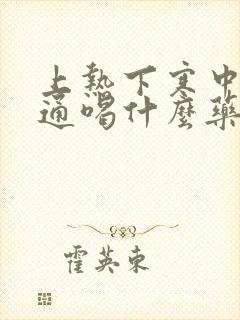 上熱下寒中
通喝什麼藥
霍英東